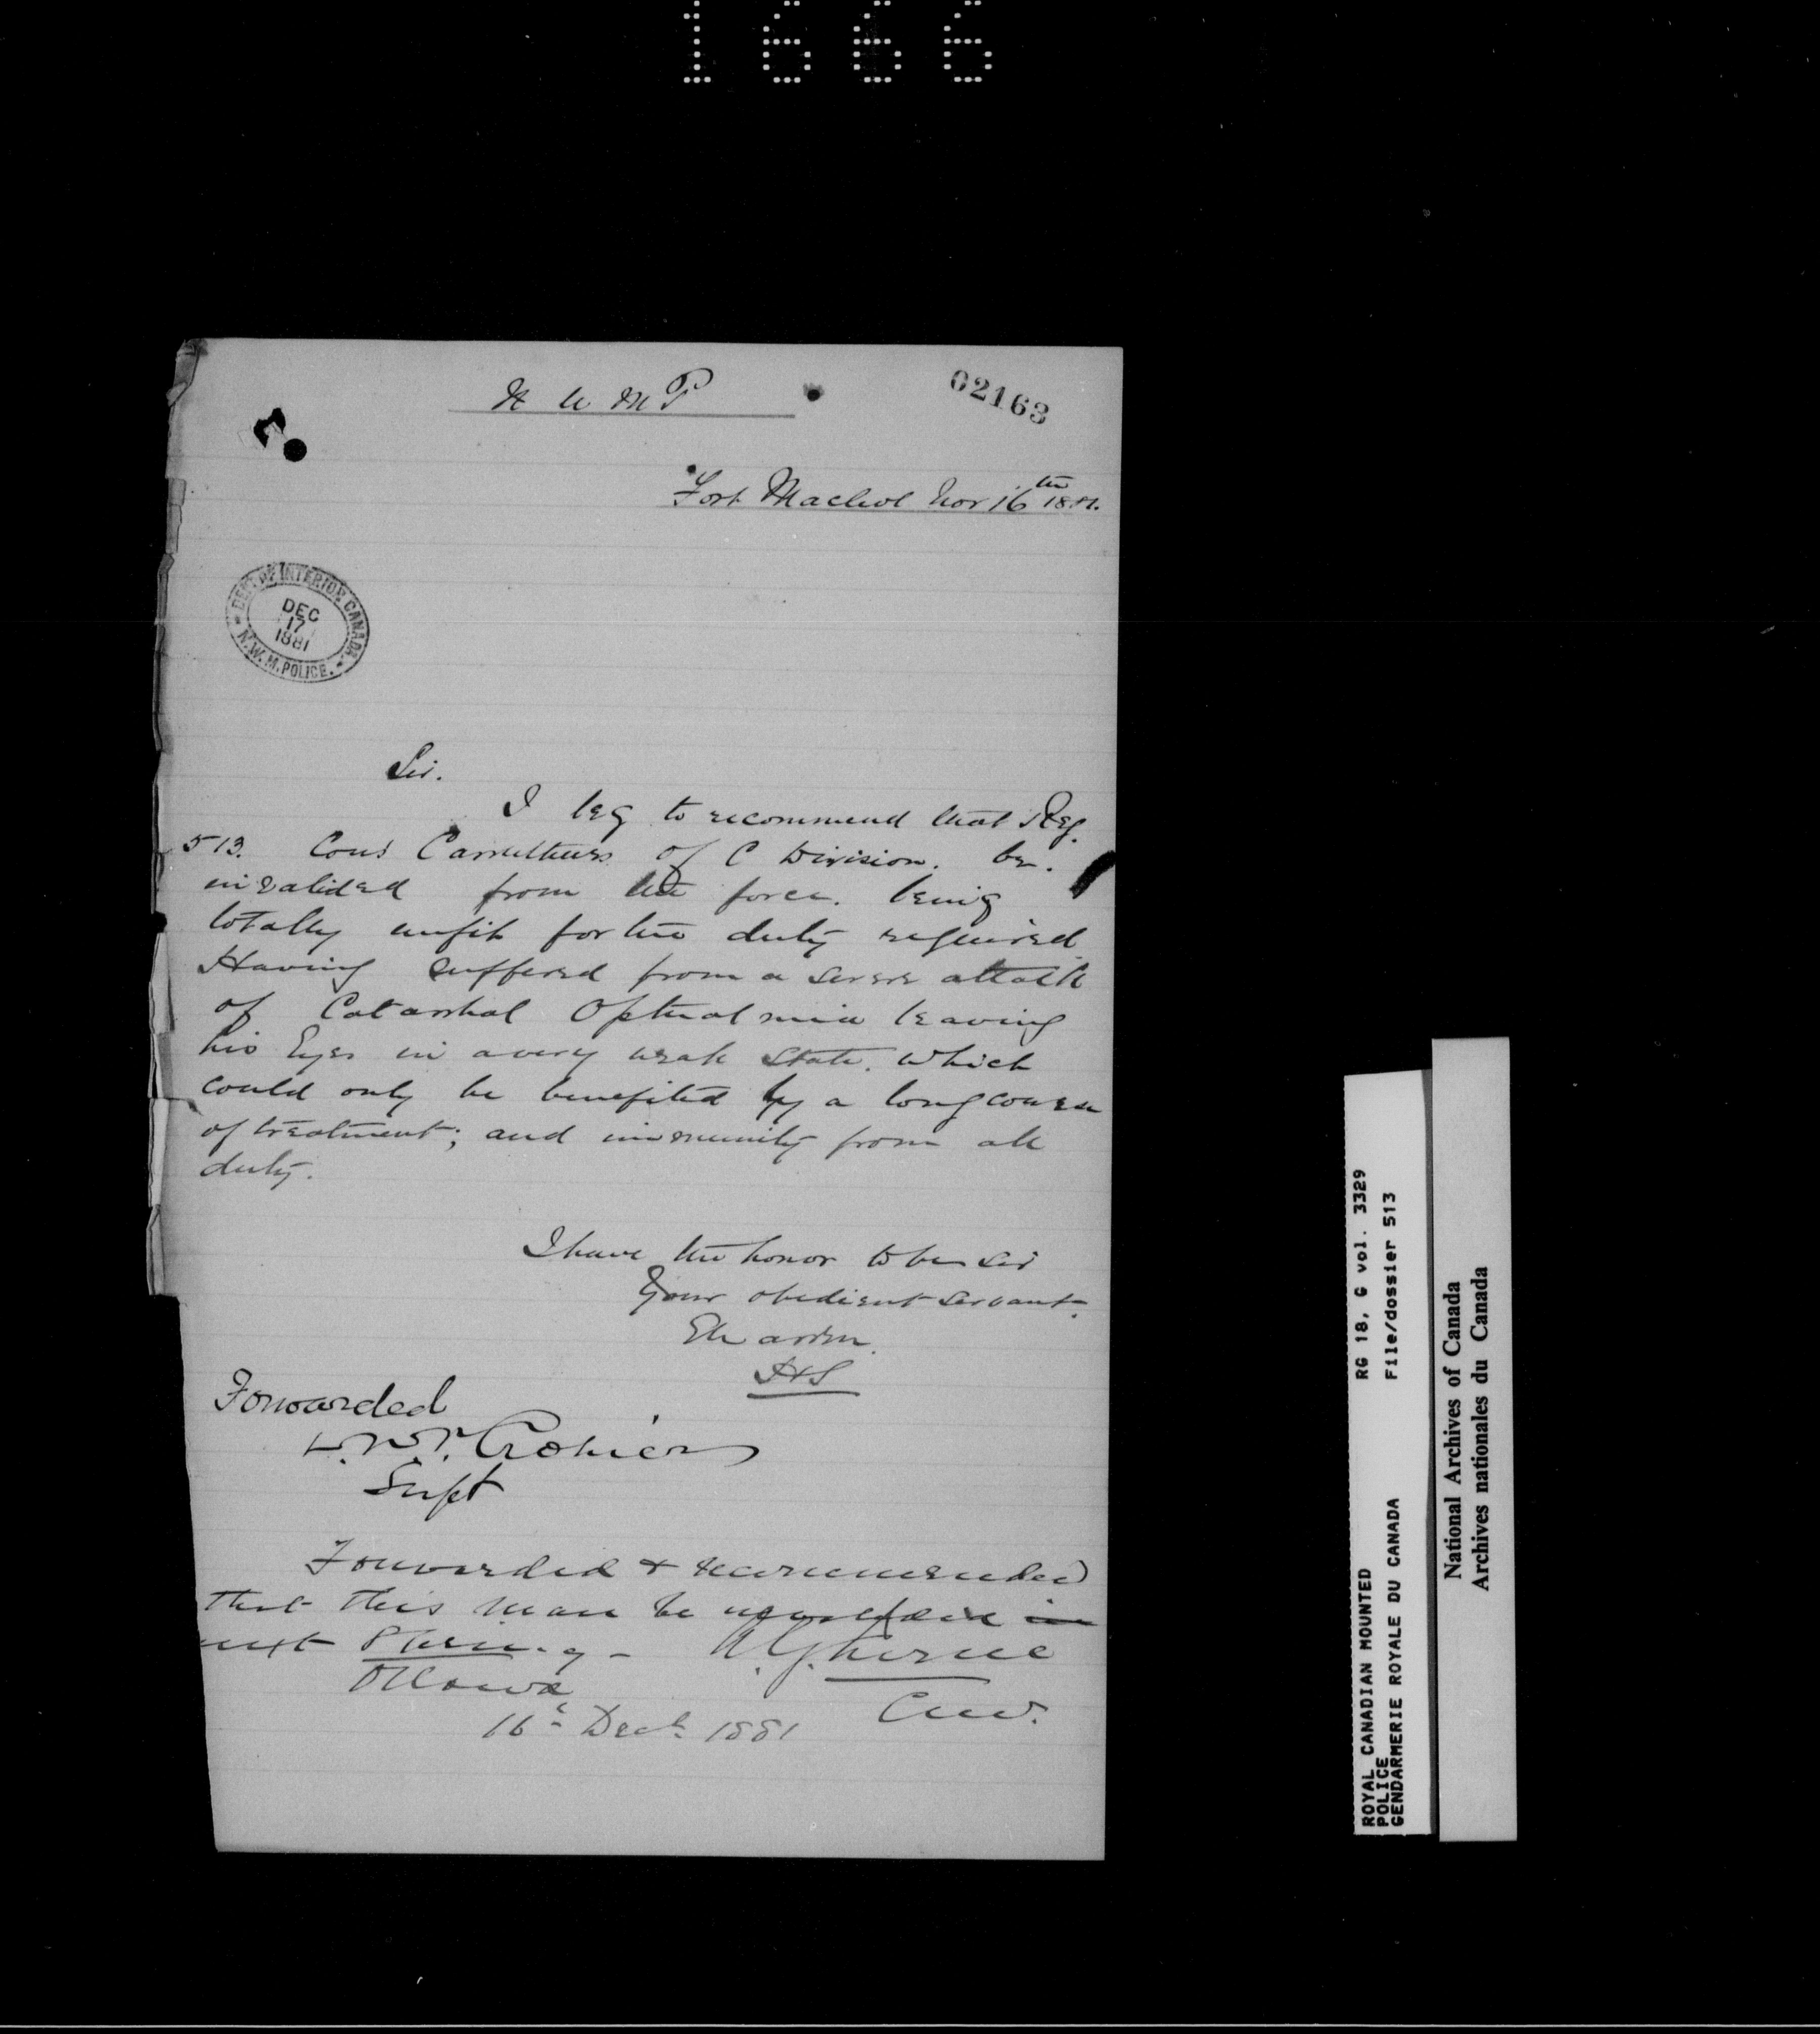 1666
N W M P
02163
Fort Macleod Nov 16th 1881.
DEPT. OF INTERIOR CANADA.
DEC
17
1881
N.W.M. POLICE.
Sir.
I beg to recommend that Reg.
513. Cons Carruthers of C Division. be.
invalided from the force. being
totally unfit for the duty required
Having suffered from a severe attack
of Catarrhal Opthalmia leaving
his Eyes in a very weak state. which
could only be benefited by a long course
of treatment; and immunity from all
duty.
I have the honor to be Sir
Your obedient servant.
Forwarded
Supt
Forwarded & recommended
that this man be invalided in
next Spring -
Ottawa
16th Decr 1881
ROYAL CANADIAN MOUNTED
POLICE
GENDARMERIE ROYALE DU CANADA
RG 18, G vol. 3329
File/dossier 513
National Archives of Canada
Archives nationales du Canada